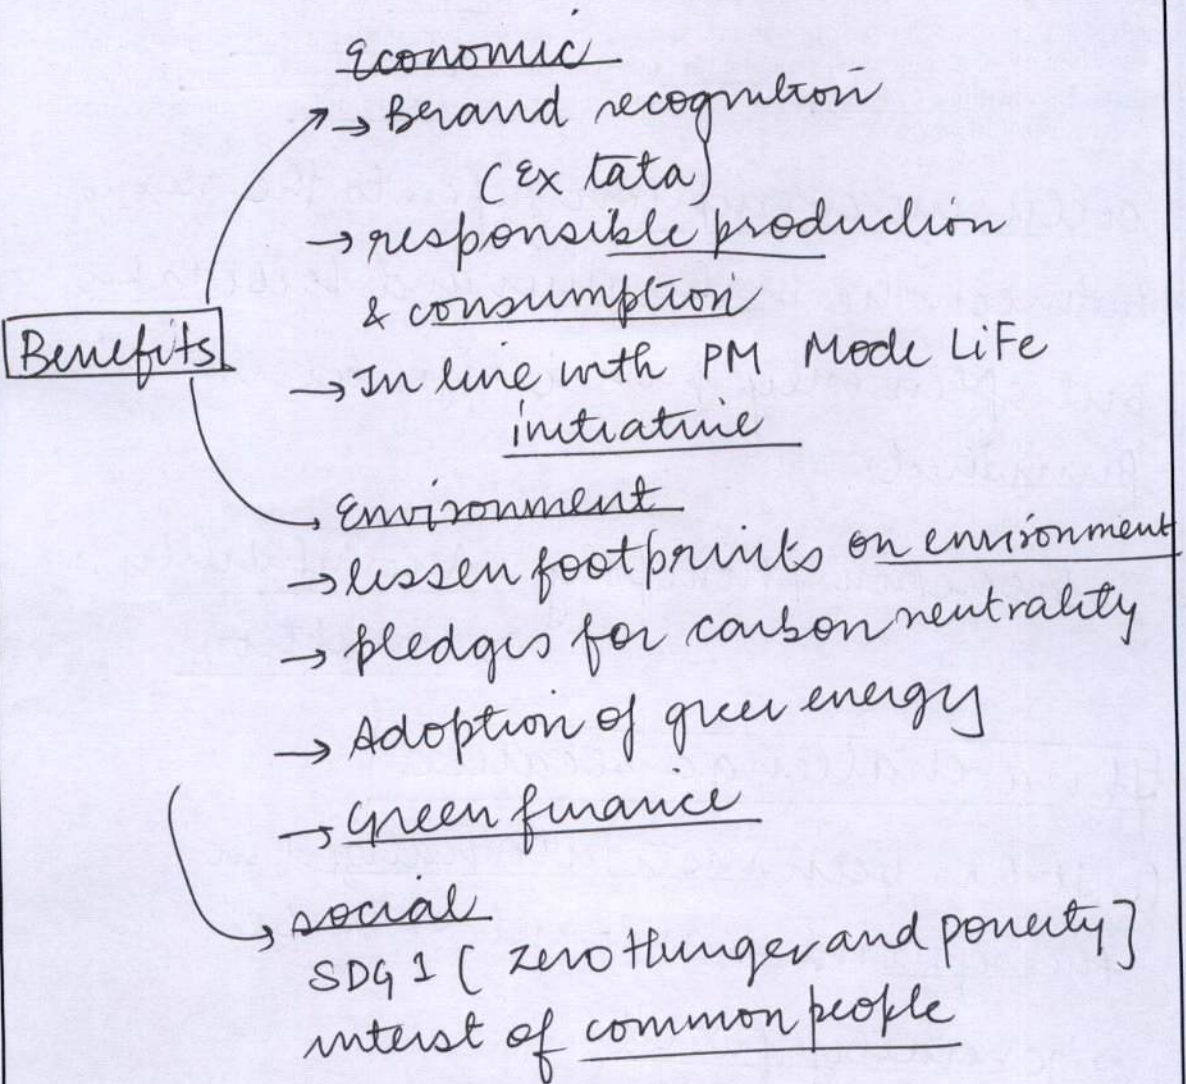 Economic
→ Brand recognition
(Ex tata)
→ responsible production
& consumption
Benefits
→ In line with PM Mode LiFe
initiative
Environment
→ lessen footprints on environment
→ pledges for carbon neutrality
→ Adoption of green energy
→ Green finance
social
SDG 1 ( zero Hunger and poverty ]
interst of common people